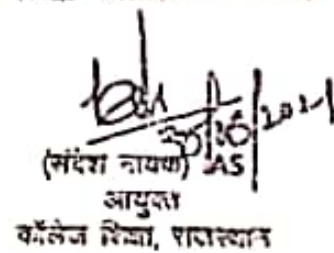 30/6/2021
(संदेश नायक) IAS
आयुक्त
कॉलेज शिक्षा, राजस्थान